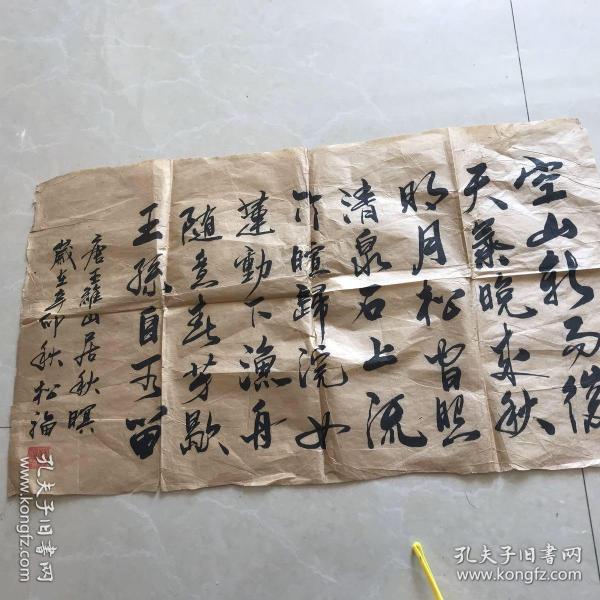 空山新雨後
天氣晚来秋
明月松间照
清泉石上流
竹喧歸浣女
蓮動下漁舟
随意春芳歇
王孫自可留
唐王維山居秋暝
歲在辛卯秋松福
孔夫子旧書网
www.kongfz.com
孔夫子旧書网
www.kongfz.com